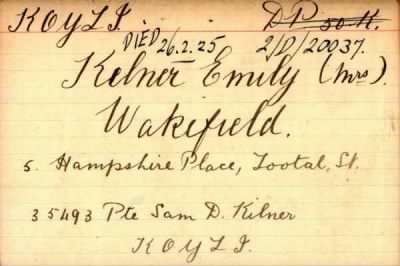 K O Y L I. D P 50 K.
DIED 26.2.25 2/D/20037.
Kelner Emily (Mrs).
Wakefield.
5. Hampshire Place, Tootal, St.
35493 Pte Sam D. Kilner
K O Y L I.